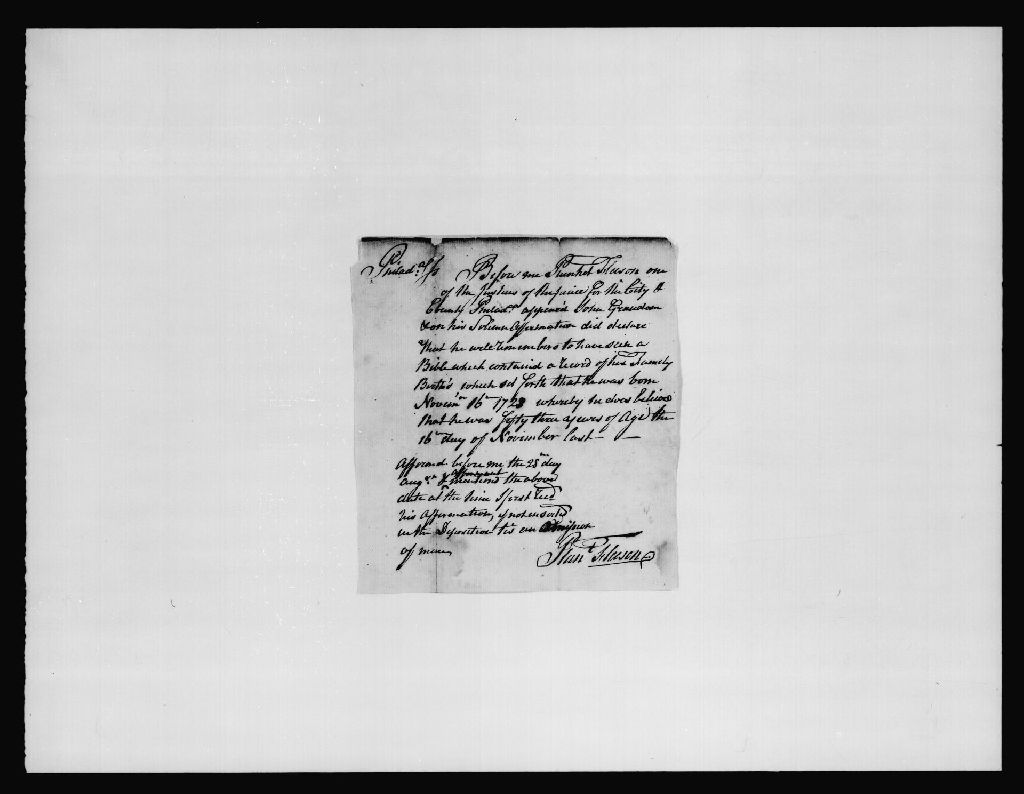 Philad.ª ss Before me Plunket Fleeson one
of the Justices of the peace for the City &
County Philad.ª appear'd John
& on his Solemn Affirmation did declare
that he well remembers to have seen a
Bible which contained a record of his Family
Births which set forth that he was born
Novem.r 16.th 1728 whereby he does believe
that he was fifty three years of Age the
16.th day of November last—
Affirmed before me the 28.th day
Aug.st & the above
date at the time I first
his Affirmation, if not inserted
in the Deposition tis an Omission
of mine
Plun.t Fleeson